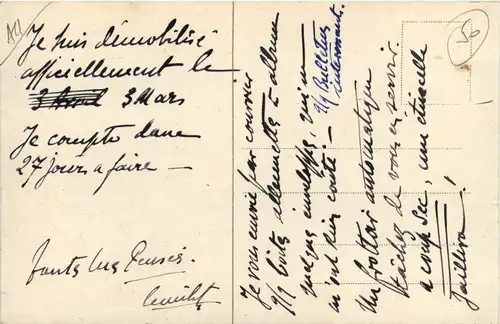 Je suis démobilisé
officiellement le
3 Mars
Je compte dans
27 jours a faire —
Toutes mes Pensés.
Je vous envoie par courrier
9/1 boite allumettes & album
quelques enveloppes, qui ne
m'ont rien coûté —
9/1 Bulletin
intéressant.
Un frottoir automatique
tâchez de vous en servir.
a coup sec, une étincelle
jaillira!
50